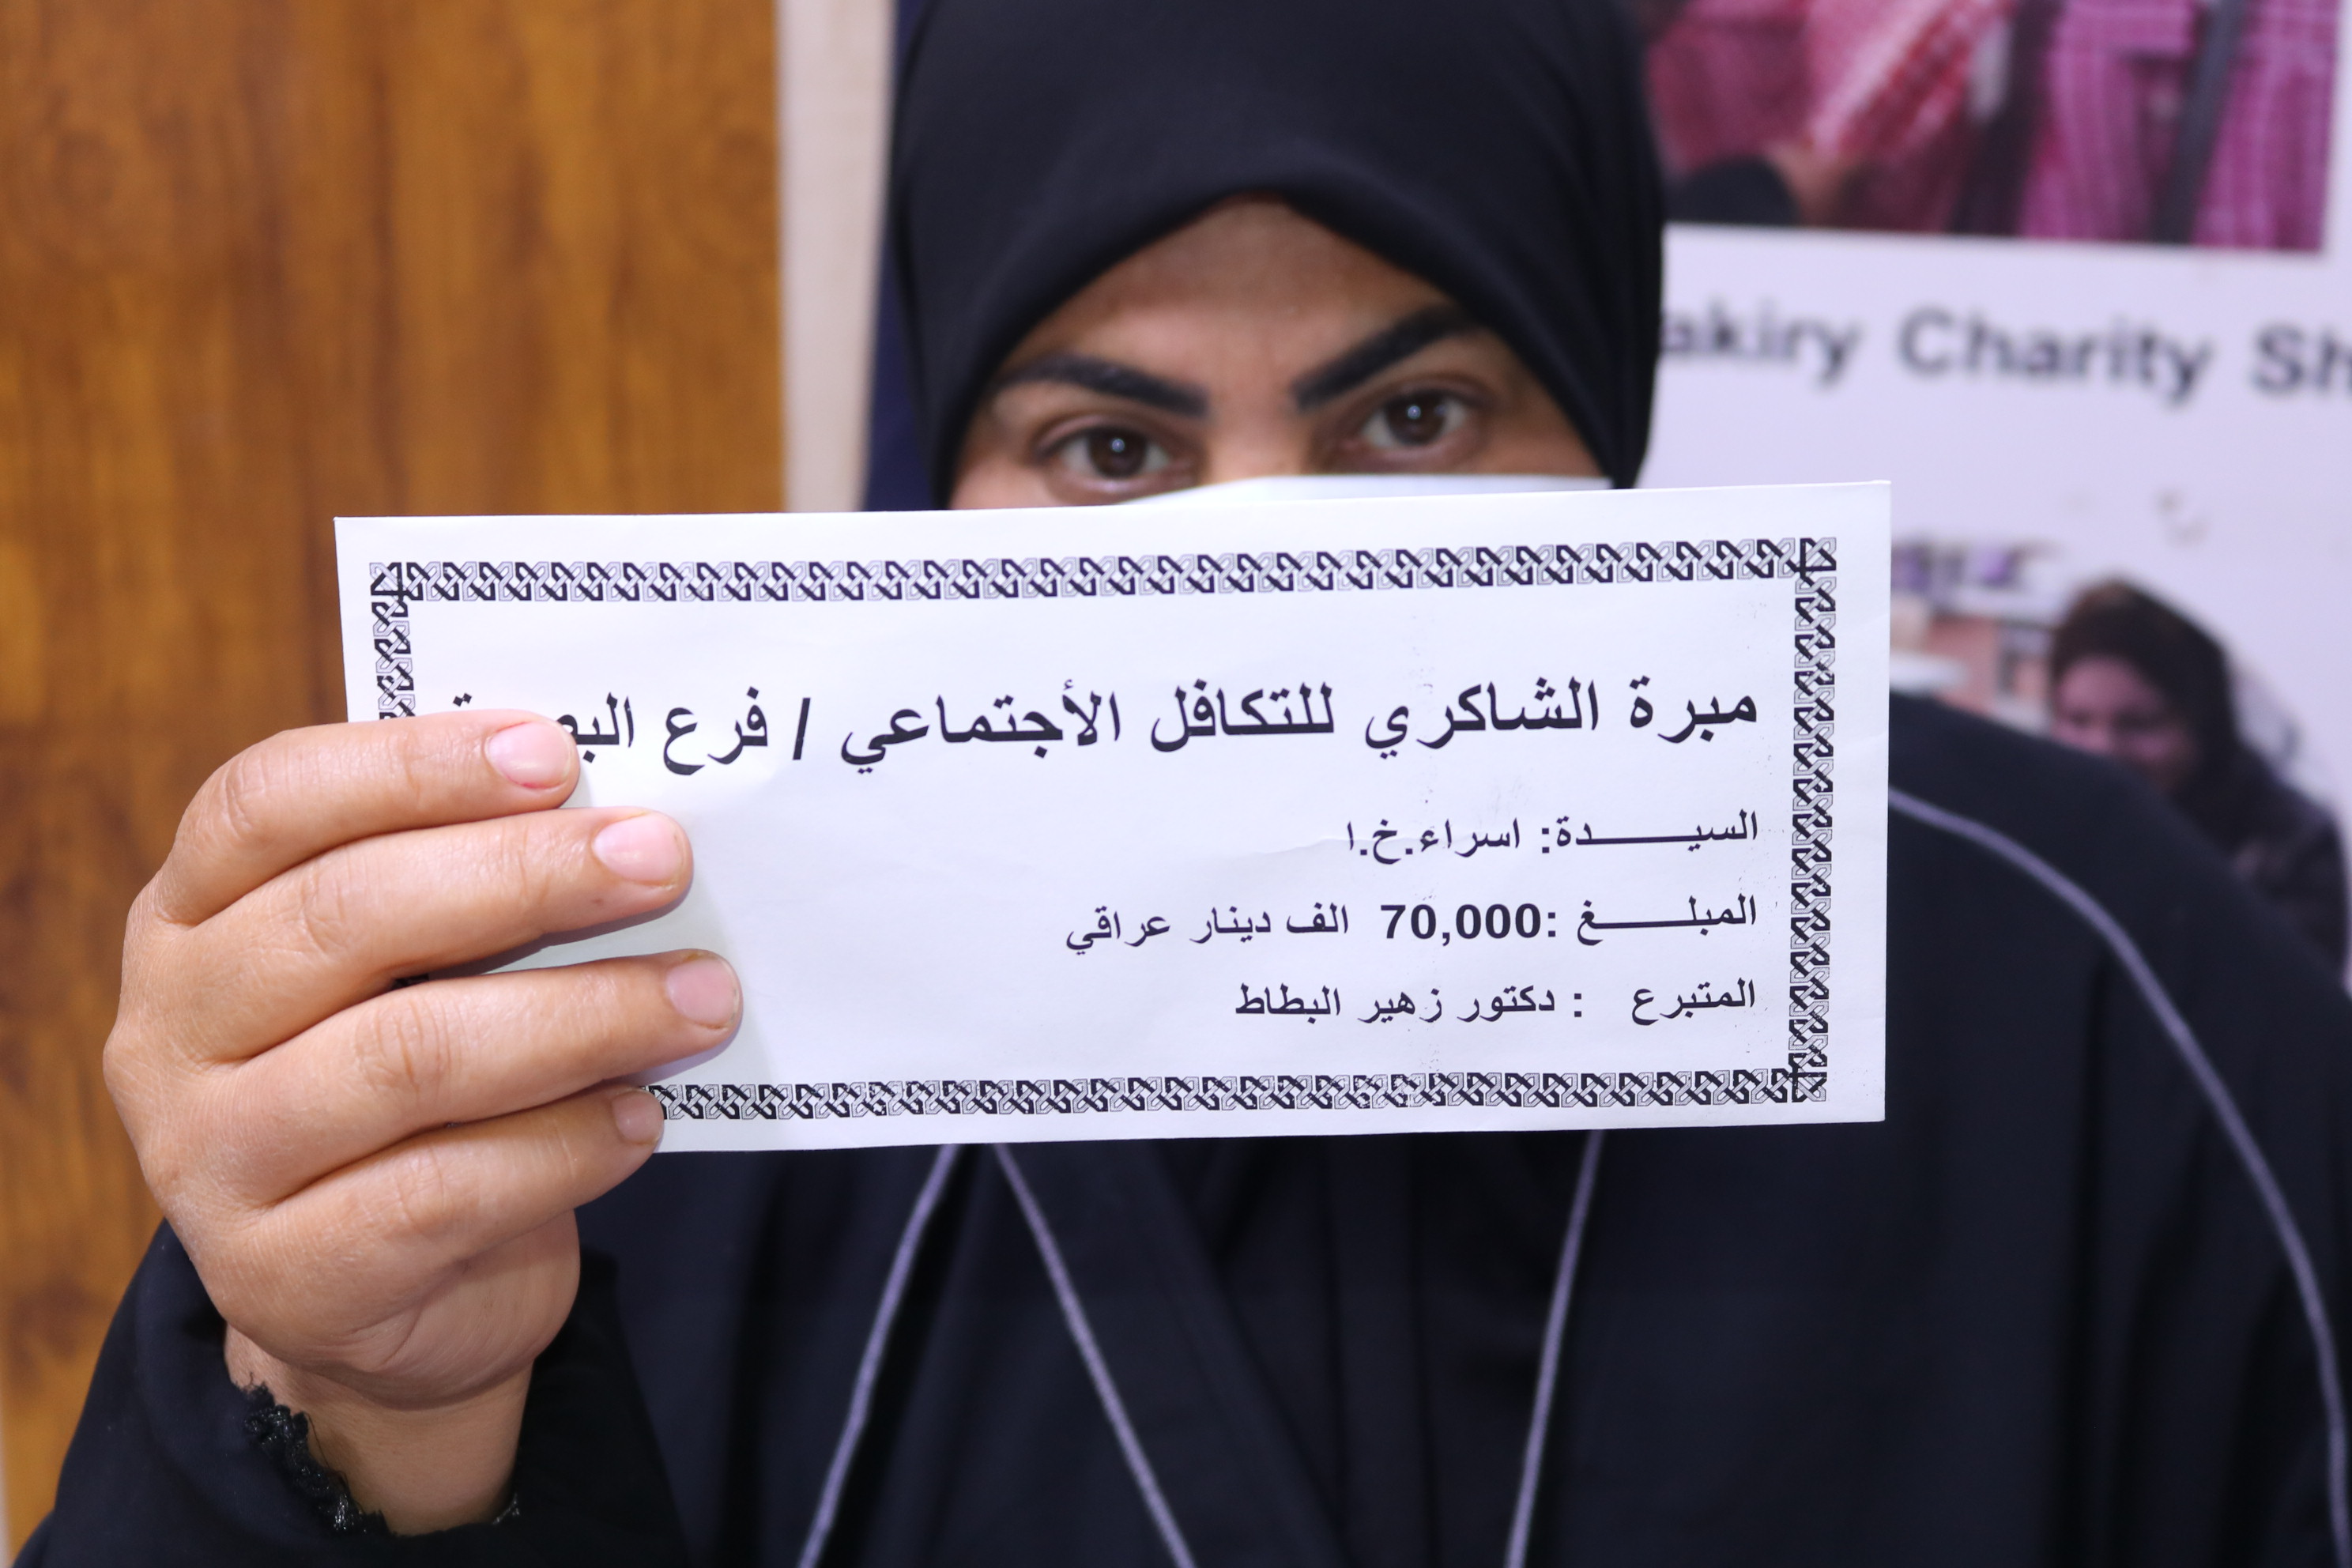 akiry Charity Sh
مبرة الشاكري للتكافل الأجتماعي / فرع
السيـــــــدة: اسراء.خ.ا
المبلـــــــغ :70,000 الف دينار عراقي
المتبرع : دكتور زهير البطاط